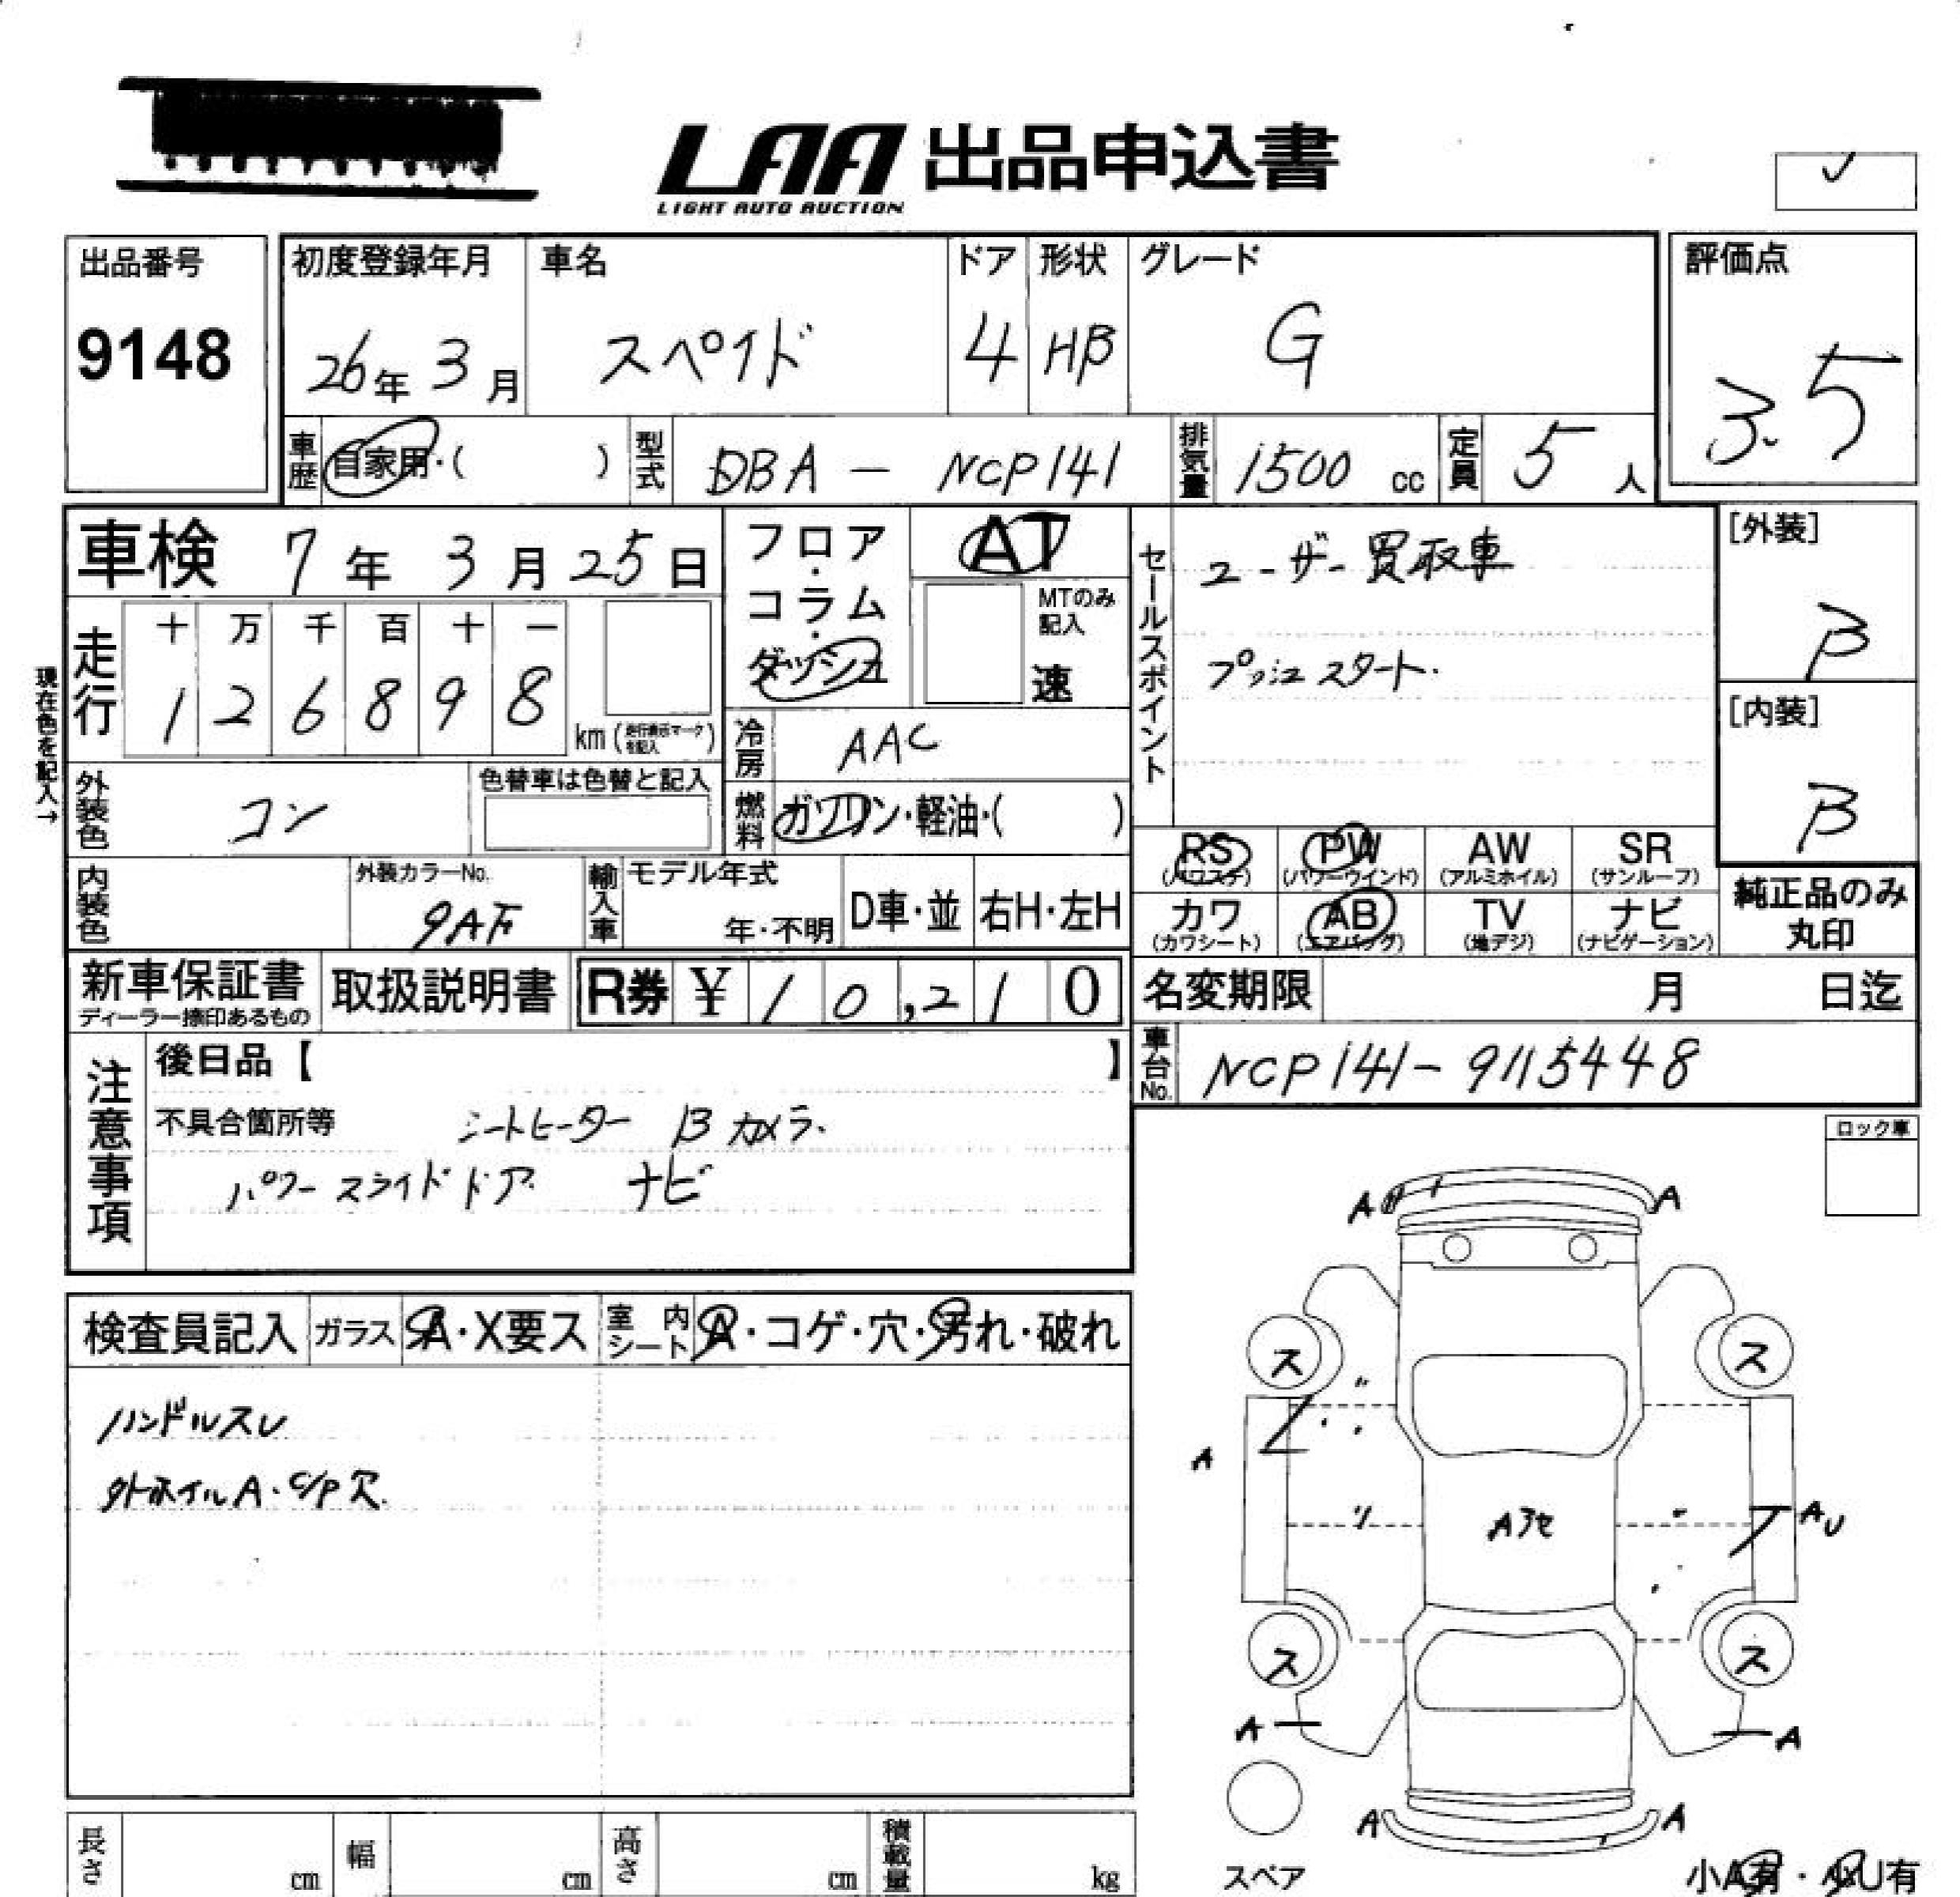 LAA 出品申込書
LIGHT AUTO AUCTION
出品番号
9148
初度登録年月
26年 3月
車名
スペイド
ドア
4
形状
HB
グレード
G
評価点
3.5
車歴
自家用・( )
型式
DBA - NCP141
排気量
1500 cc
定員
5 人
車検 7年 3月 25日
フロア・コラム・ダッシュ
AT
MTのみ記入
速
セールスポイント
ユーザー買取車
プッシュスタート.
[外装]
B
[内装]
B
現在色を記入→
走行
十 万 千 百 十 一
1 2 6 8 9 8
km (走行表示マークを記入)
冷房
AAC
外装色
コン
色替車は色替と記入
燃料
ガソリン・軽油・( )
RS (パワステ)
PW (パワーウインド)
AW (アルミホイル)
SR (サンルーフ)
カワ (カワシート)
AB (エアバッグ)
TV (地デジ)
ナビ (ナビゲーション)
純正品のみ丸印
内装色
外装カラーNo.
9AF
輸入車
モデル年式
年・不明
D車・並
右H・左H
新車保証書
ディーラー捺印あるもの
取扱説明書
R券 ¥ 1 0,2 1 0
名変期限 月 日迄
車台No.
NCP141-9115448
注意事項
後日品【 】
不具合箇所等
シートヒーター Bカメラ.
パワースライドドア ナビ
ロック車
検査員記入
ガラス
A・X要ス
室内シート
A・コゲ・穴・汚れ・破れ
ハンドルスレ
外ホイルA・C/P穴.
A A
ス ス
A
A U
ス ス
A A
A A
スペア
小A有・小U有
長さ cm
幅 cm
高さ cm
積載量 kg